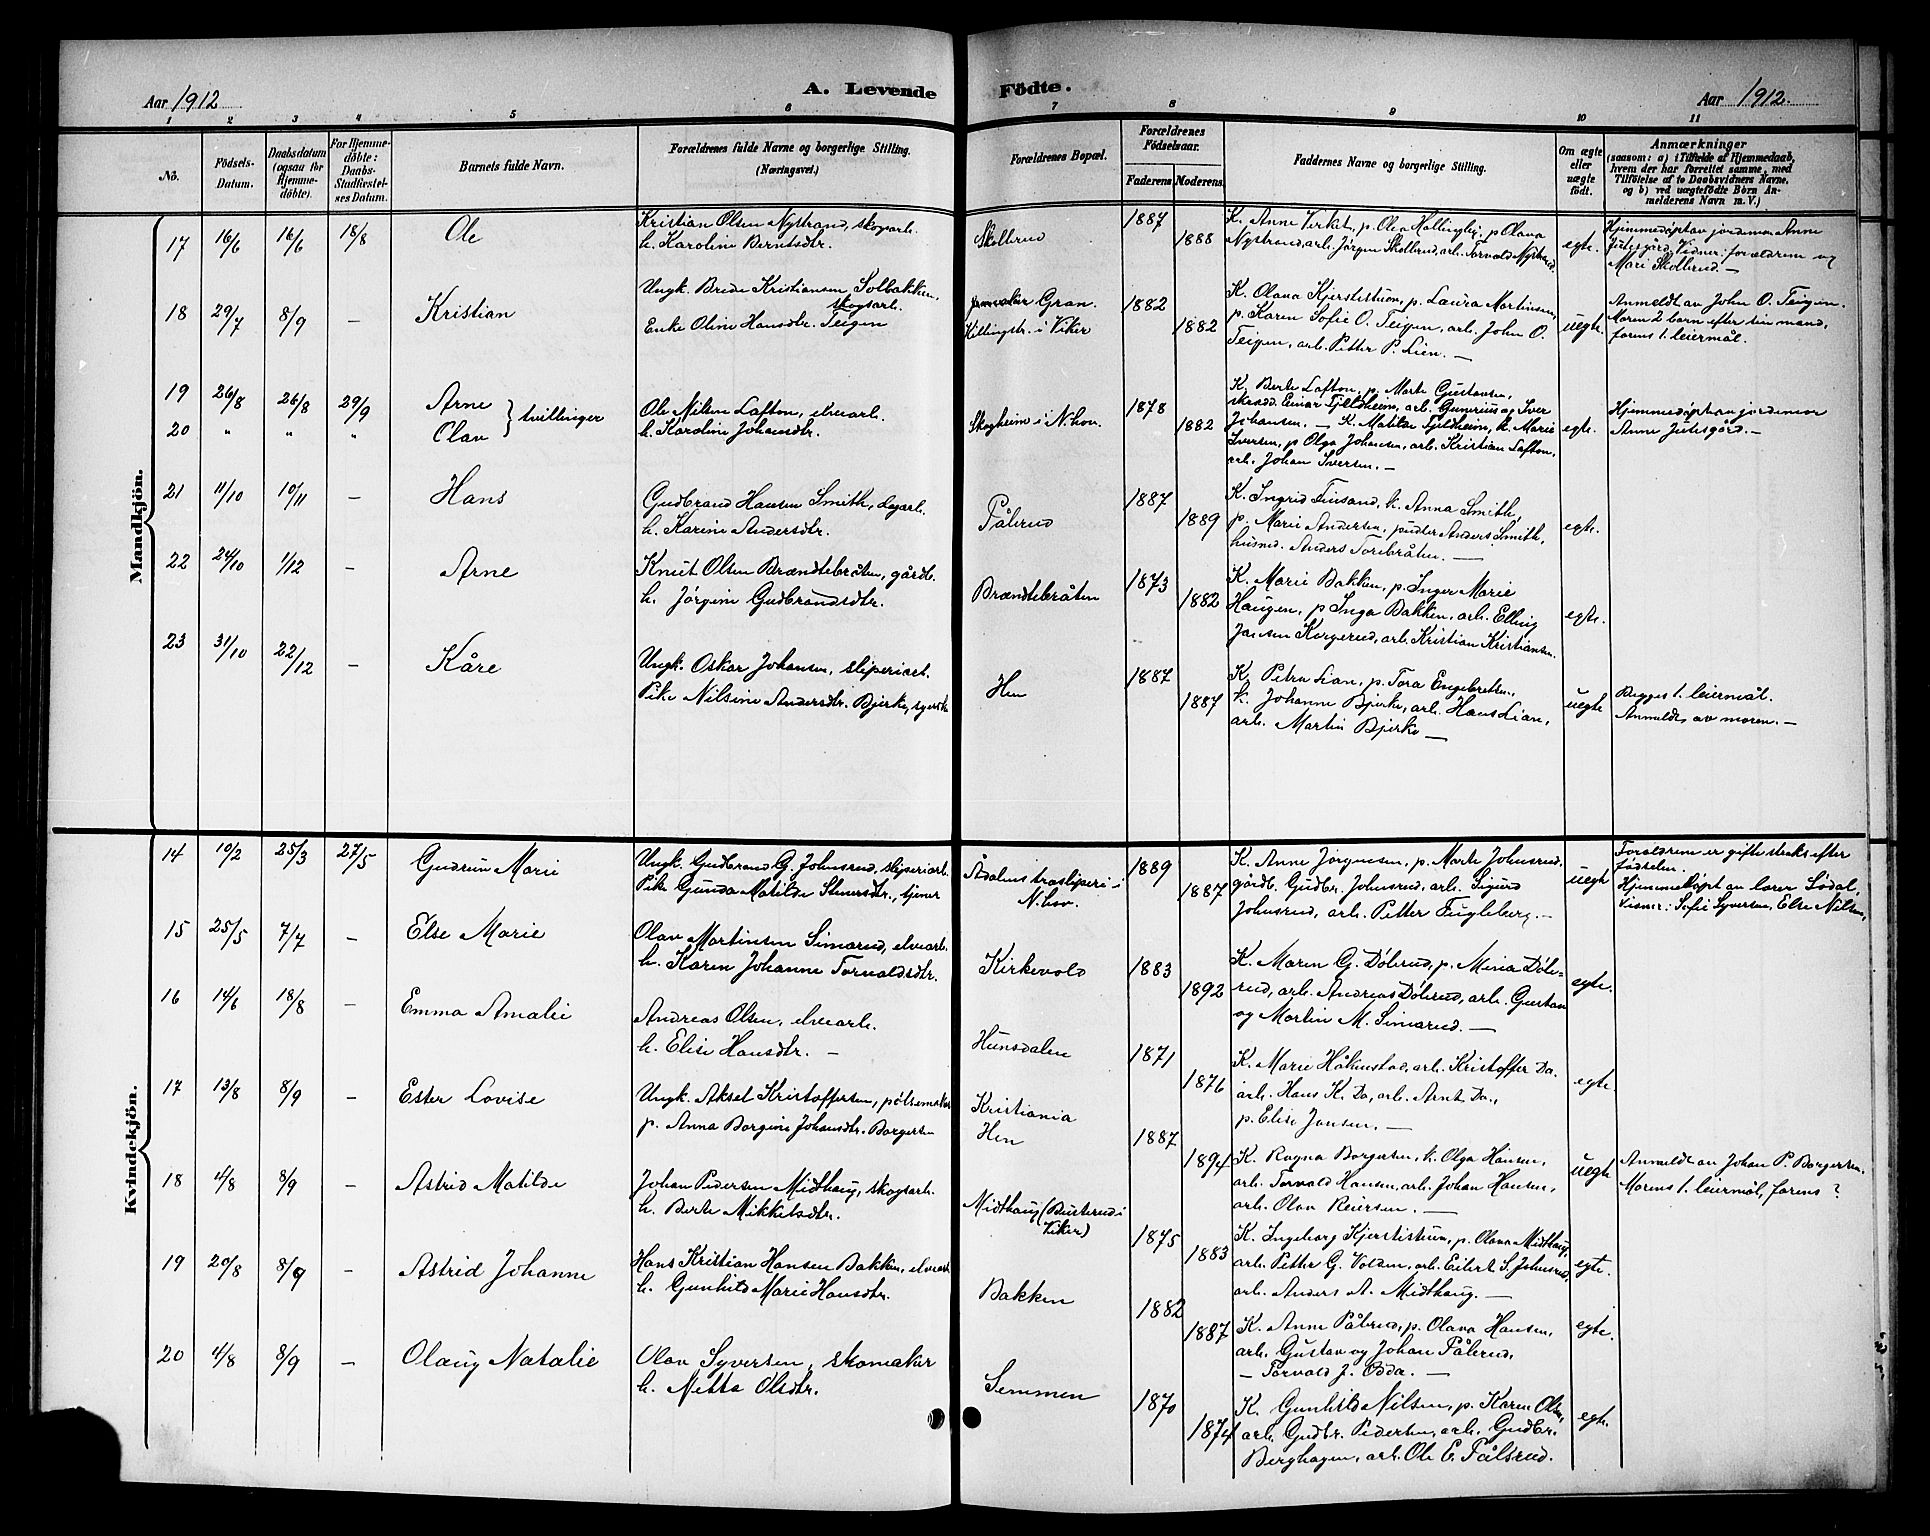 Aar 1912
A. Levende Födte.
Aar 1912.
1 2 3 4 5 6 7 8 9 10 11
No.
Födsels-Datum.
Daabsdatum (ogsaa for Hjemme-döbte).
For Hjemme-döbte: Daabs-Stadfæstel-ses Datum.
Barnets fulde Navn.
Forældrenes fulde Navne og borgerlige Stilling.
(Næringsvei.)
Forældrenes Bopæl.
Forældrenes Födselsaar.
Faderens. Moderens.
Faddernes Navne og borgerlige Stilling.
Om ægte eller uægte født.
Anmærkninger
(saasom: a) i Tilfælde af Hjemmedaab,
hvem der har forrettet samme, med
Tilföielse af to Daabsvidners Navne,
og b) ved uægtefødte Börn An-
melderens Navn m. V.)
Mandkjön.
17 16/6 16/6 18/8 Ole
Kristian Olsen Nystrand, skogarb.
h. Karoline Berntsdtr.
Skollerud
1887
1888
K. Anne Virket, p. Olea Hollingby, p Olava
Nystrand, arb. Jörgen Skollerud, arb. Torvald Nystrand
egte.
Hjemmedöpt av jordmor Anne
Jutesgård, Vidner: forældrene og
Mari Skollerud. —
18 29/7 8/9 — Kristian
Ungk. Brede Kristiansen Solbakken,
skogsarb.
Enke Oline Hansdtr. Teigen
Gran.
i Viker
1882
1882
K. Olava Kjerstistuen, p. Laura Martinsen,
p. Karen Sofie O. Teigen, arb. John O.
Teigen, arb. Petter P. Lien. —
uegte.
Anmeldt av John O. Teigen.
Moren 2 barn efter sin mand,
farens 1. leiermål.
19 26/8 26/8 29/9 Arne
20 " " " Olav
} tvillinger
Ole Nilsen Lafton, elvearb.
h. Karoline Johansdtr.
Skogheim i N. hov.
1878
1882
K. Berte Lafton, p. Marte Gustavsen,
skrædd. Einar Fjeldheim, arb. Gunerius og Iver
Johansen. — K. Matilde Fjeldheim, k. Marie
Iversen, p Olga Johansen, arb. Kristian Lafton,
arb. Johan Iversen. —
egte.
Hjemmedöpt av jordmor
Anne Jutesgård. —
21 11/10 10/11 — Hans
Gudbrand Hansen Smith, dagarb.
h. Karine Andersdtr.
Pålerud
1887
1889
K. Ingrid Finsand, k. Anna Smith,
p. Marie Andersen, Anders Smith,
husmd. Anders Torebråten. —
egte.
22 24/10 1/12 — Arne
Knut Olsen Brændtebråten, gårdb.
h. Jörgine Gudbrandsdtr.
Brændtebråten
1873
1882
K. Marie Bakken, p. Inger Marie
Haugen, p Inga Bakken, arb. Elling
Jansen Korgerud, arb. Kristian Kristiansen.
egte.
23 31/10 22/12 — Kåre
Ungk. Oskar Johansen, sliperiarb.
Pike Nilsine Andersdtr. Bjerke, syerske
Hen
1887
1887
K. Petra Lian, p. Tora Engebretsen,
k. Johanne Bjerke, arb. Hans Lian,
arb. Martin Bjerke —
uegte
Begges 1. leiermål.
Anmeldt av moren. —
Kvindekjön.
14 10/2 25/3 27/5 Gudrun Marie
Ungk. Gudbrand G. Johnsrud, sliperiarb.
Pike Gunda Matilde Stenersdtr., tjener
Ådalens træsliperi i
N. hov.
1889
1887
K. Anne Jörgensen, p. Marte Johnsrud,
gårdb. Gudbr. Johnsrud, arb. Sigurd
Johnsrud, arb. Petter Fugleberg. —
uegte
Forældrene er gifte straks efter
födselen.
Hjemmedöpt av lærer Södal,
Vidner: Sofie Syversen, Else Nilsen,
15 25/5 7/7 — Else Marie
Olav Martinsen Simarud, elvearb.
h. Karen Johanne Torvaldsdtr.
Kirkevold
1883
1892
K. Maren G. Dölerud, p. Mina Döle-
rud, arb. Andreas Dölerud, arb. Gustav
og Martin M. Simarud. —
egte.
16 14/6 18/8 — Emma Amalie
Andreas Olsen, elvearb.
h. Elise Hansdtr. —
Hunsdalen
1871
1876
K. Marie Håkenstad, arb. Kristoffer Do.
arb. Hans K. Do, arb. Arnt Do.,
p. Elise Jansen. —
egte.
17 13/8 8/9 — Ester Lovise
Ungk. Aksel Kristoffersen, pölsemaker
p. Anna Borgine Johansdtr. Borgersen
Kristiania
Hen
1887
1894
K. Ragna Borgersen, k. Olga Hansen,
arb. Torvald Hansen, arb. Johan Hansen,
arb. Olav Reiersen. —
uegte.
Anmeldt av Johan P. Borgersen.
Morens 1. leiermål, farens ?
18 4/8 8/9 — Astrid Matilde
Johan Pedersen Midthaug, skogsarb.
h. Berte Mikkelsdtr.
Midthaug (Busterud i
Viker)
1875
1883
K. Ingeborg Kjerstistuen, p. Olava Midthaug,
arb. Petter G. Volden, arb. Eilert S. Johnsrud,
arb. Anders A. Midthaug. —
egte.
19 20/8 8/9 — Astrid Johanne
Hans Kristian Hansen Bakken, elvearb.
h. Gunhild Marie Hansdtr.
Bakken
1882
1887
K. Anne Pålerud, p. Olava Hansen,
arb. Gustav og Johan Pålerud,
— Torvald J. Odda. —
egte.
20 4/8 8/9 — Olaug Natalie
Olav Syversen, skomaker
h. Netta Olsdtr.
Semmen
1870
1874
K. Gunhild Nilsen, p. Karen Olsen,
arb. Gudbr. Pedersen, arb. Gudbr.
Berghagen, arb. Ole E. Pålsrud.
egte.